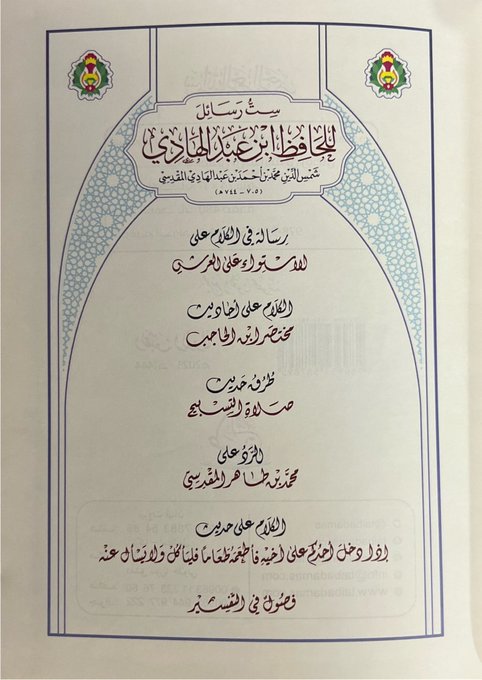 ست رسائل
للحافظ ابن عبد الهادي
شمس الدين محمد بن أحمد بن عبد الهادي المقدسي
(٧٠٥ - ٧٤٤ هـ)
رسالة في الكلام على
الاستواء على العرش
الكلام على أحاديث
مختصر ابن الحاجب
طرق حديث
صلاة التسبيح
الرد على
محمد بن طاهر المقدسي
الكلام على حديث
إذا دخل أحدكم على أخيه فأطعمه طعاما فليأكل ولا يسأل عنه
فصول في التفسير